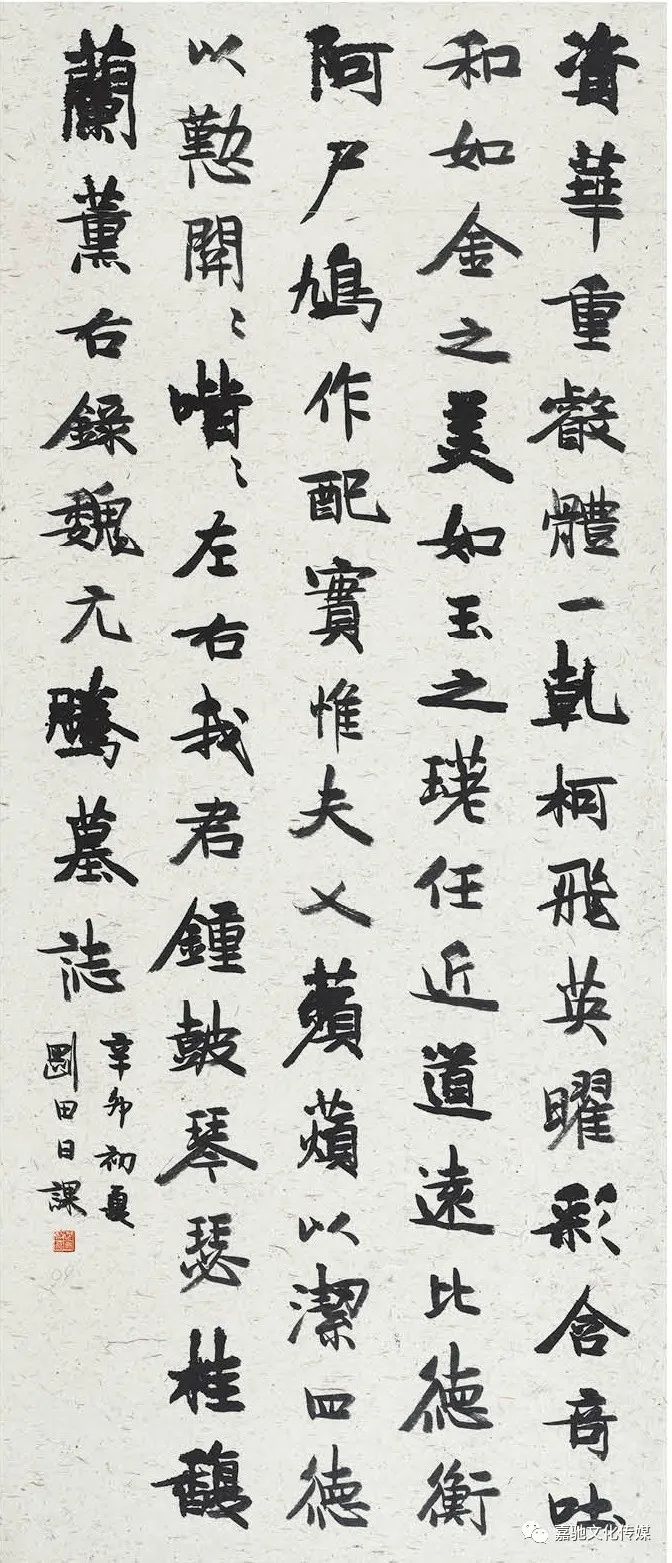 華重叡體一乹柯飛英曜彩含奇吐
和如金之美如玉之瑳任近道遠比德衡
阿尸鳩作配實惟夫人蘋薠以潔四德
以懃關〻喈〻左右我君鍾鼓琴瑟桂馥
蘭薰右錄魏元騰墓誌
辛卯初夏
剛田日課
嘉驰文化传媒